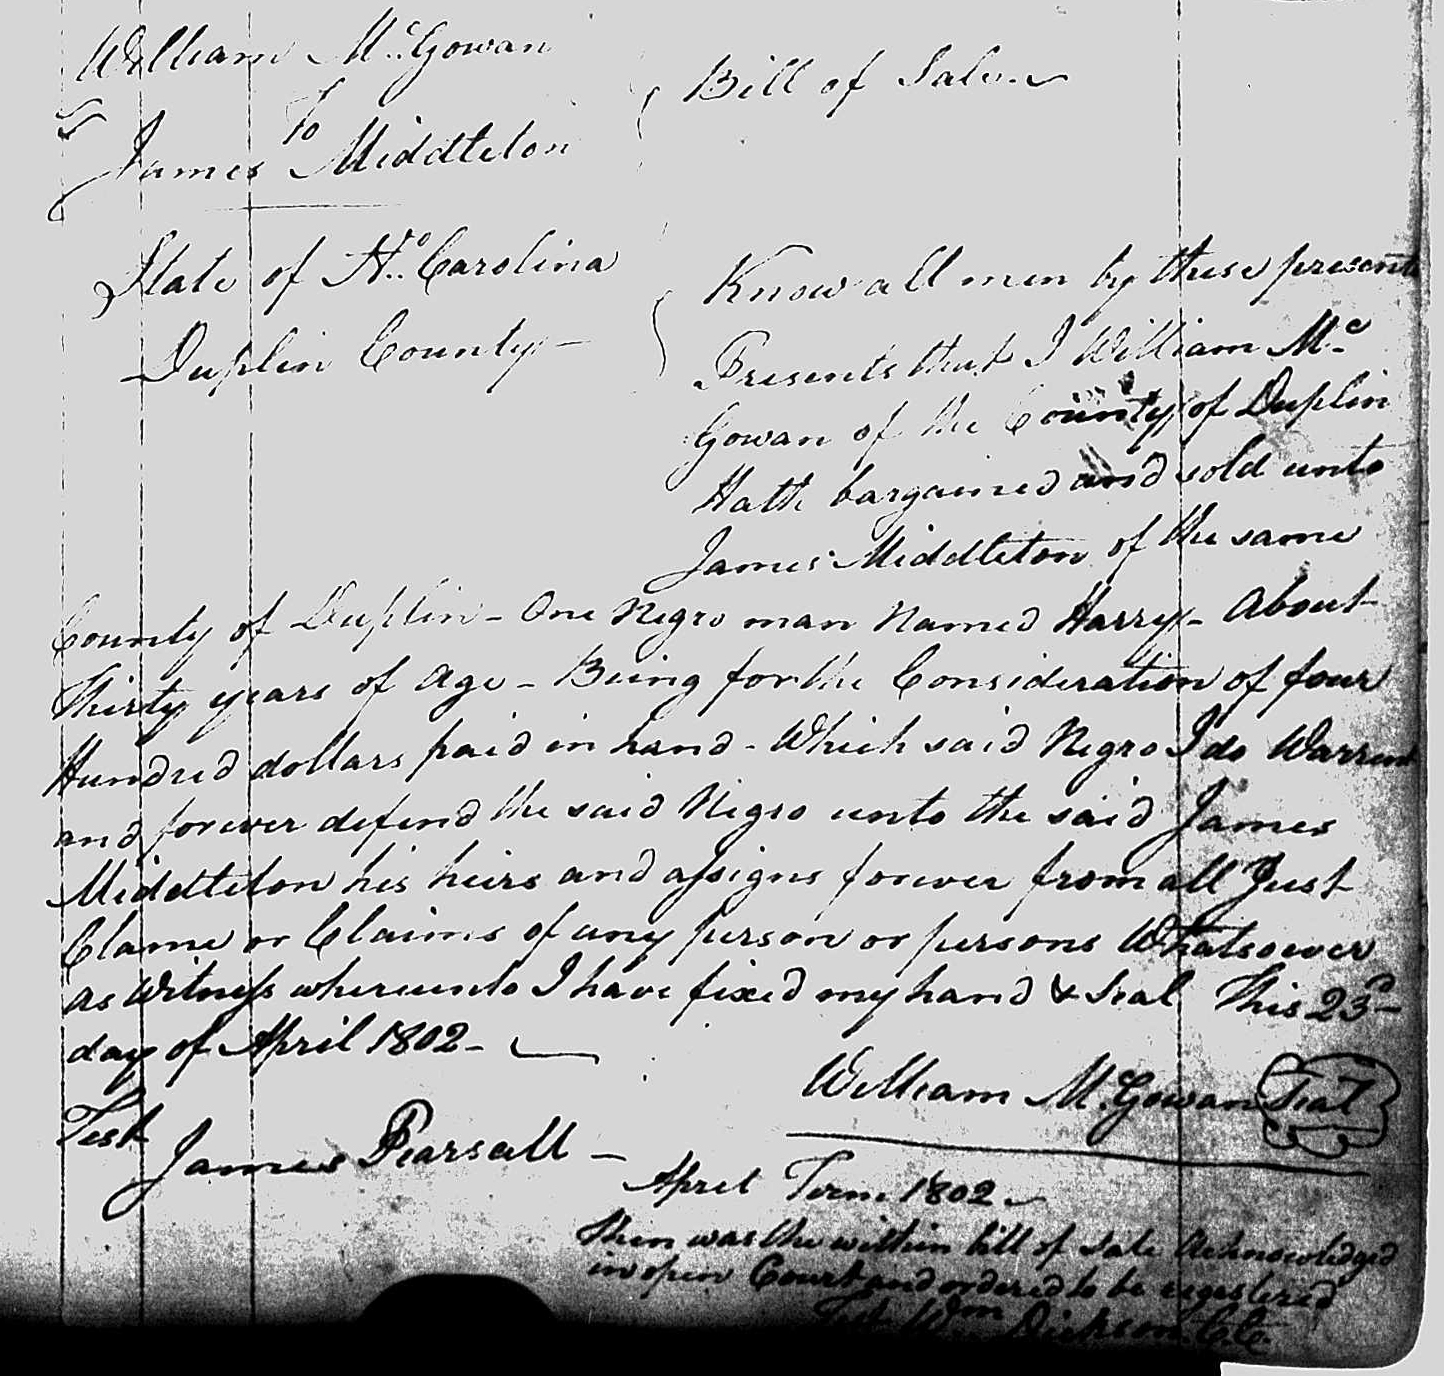 William Mc.Gowan
To
James Middleton
Bill of Sale
State of No. Carolina
Duplin County
Know all men by these presents
Presents that I William Mc
Gowan of the County of Duplin
Hath bargained and sold unto
James Middleton of the same
County of Duplin - One Negro man Named Harry - About
Thirty years of Age - Being for the Consideration of four
Hundred dollars paid in hand - Which said Negro I do Warrent
and forever defend the said Negro unto the said James
Middleton his heirs and assigns forever from all Just
Clame or Claims of any person or persons Whatsoever
as Witness whereunto I have fixed my hand & Seal This 23d
day of April 1802 -
William Mc.Gowan Seal
Test
James Pearsall -
April Term 1802
Then was the within bill of sale Acknowledged
in open Court and ordered to be registered
Test Wm Dickson C.C.